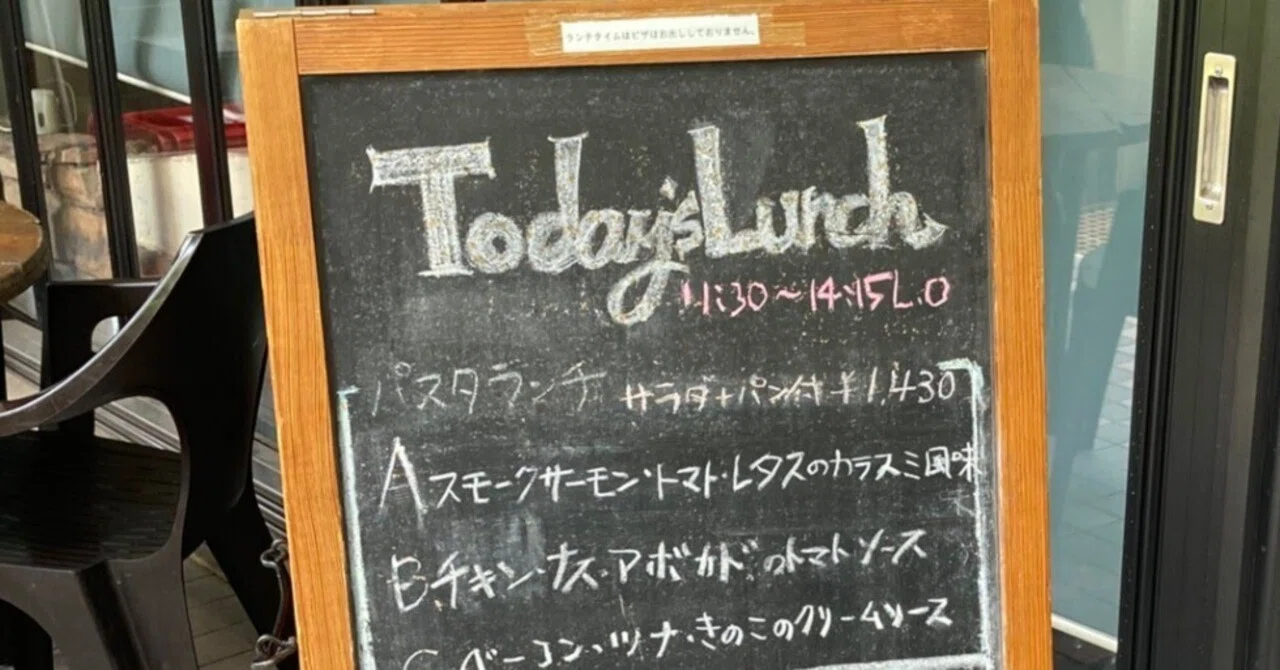 ランチタイムはピザはお出ししておりません。
Today's Lunch
11:30～14:15L.O
パスタランチ サラダ+パン付 ¥1,430
A スモークサーモン・トマト・レタスのカラスミ風味
B チキン・ナス・アボカドのトマトソース
C ベーコン・ツナ・きのこのクリームソース